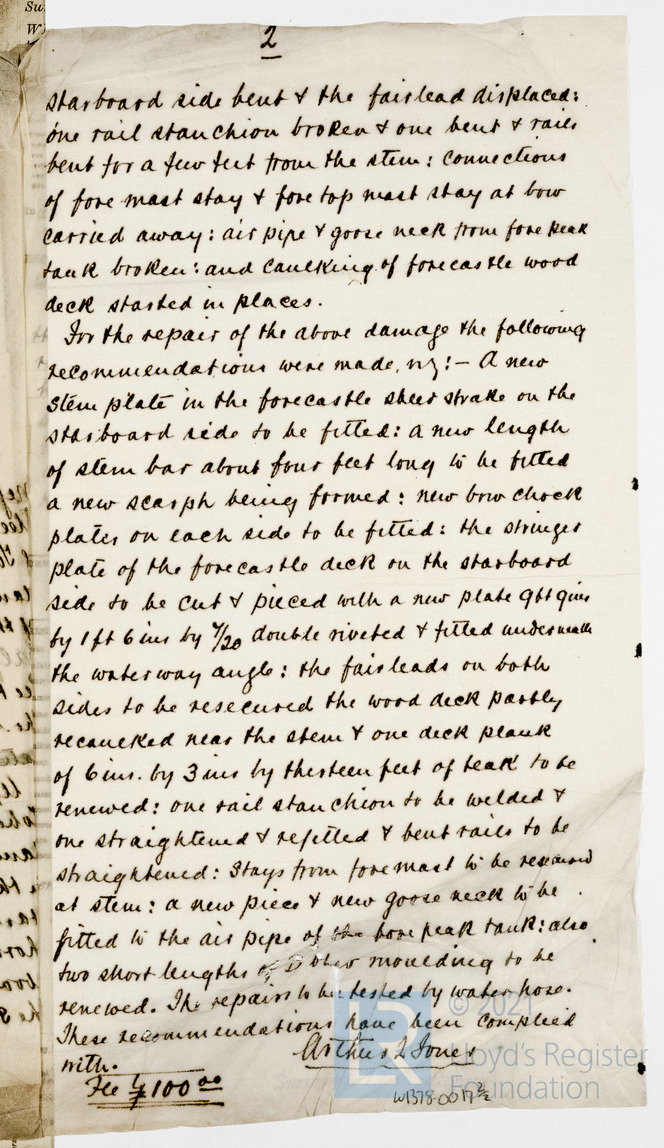 Su
W
2
starboard side bent & the fairlead displaced:
one rail stanchion broken & one bent & rails
bent for a few feet from the stem: connections
of fore mast stay & fore top mast stay at bow
carried away: air pipe & goose neck from fore peak
tank broken: and caulking of forecastle wood
deck started in places.
For the repair of the above damage the following
recommendations were made, viz:- A new
stem plate in the forecastle sheer strake on the
starboard side to be fitted: a new length
of stem bar about four feet long to be fitted
a new scarph being formed: new bow chock
plates on each side to be fitted: the stringer
plate of the forecastle deck on the starboard
side to be cut & pieced with a new plate 9ft 9ins
by 1ft 6ins by 7/20 double riveted & fitted underneath
the waterway angle: the fairleads on both
sides to be resecured the wood deck partly
recaulked near the stem & one deck plank
of 6ins. by 3ins by thirteen feet of teak to be
renewed: one rail stanchion to be welded &
one straightened & refitted & bent rails to be
straightened: Stays from fore mast to be resecured
at stem: a new piece & new goose neck to be
fitted to the air pipe of the fore peak tank: also
two short lengths of moulding to be
renewed. The repairs to be tested by water hose.
These recommendations have been complied
with.
Arthur L Jones
Fee 100 00
© 2021
LR
Lloyd's Register
Foundation
W1378-0017 2/2